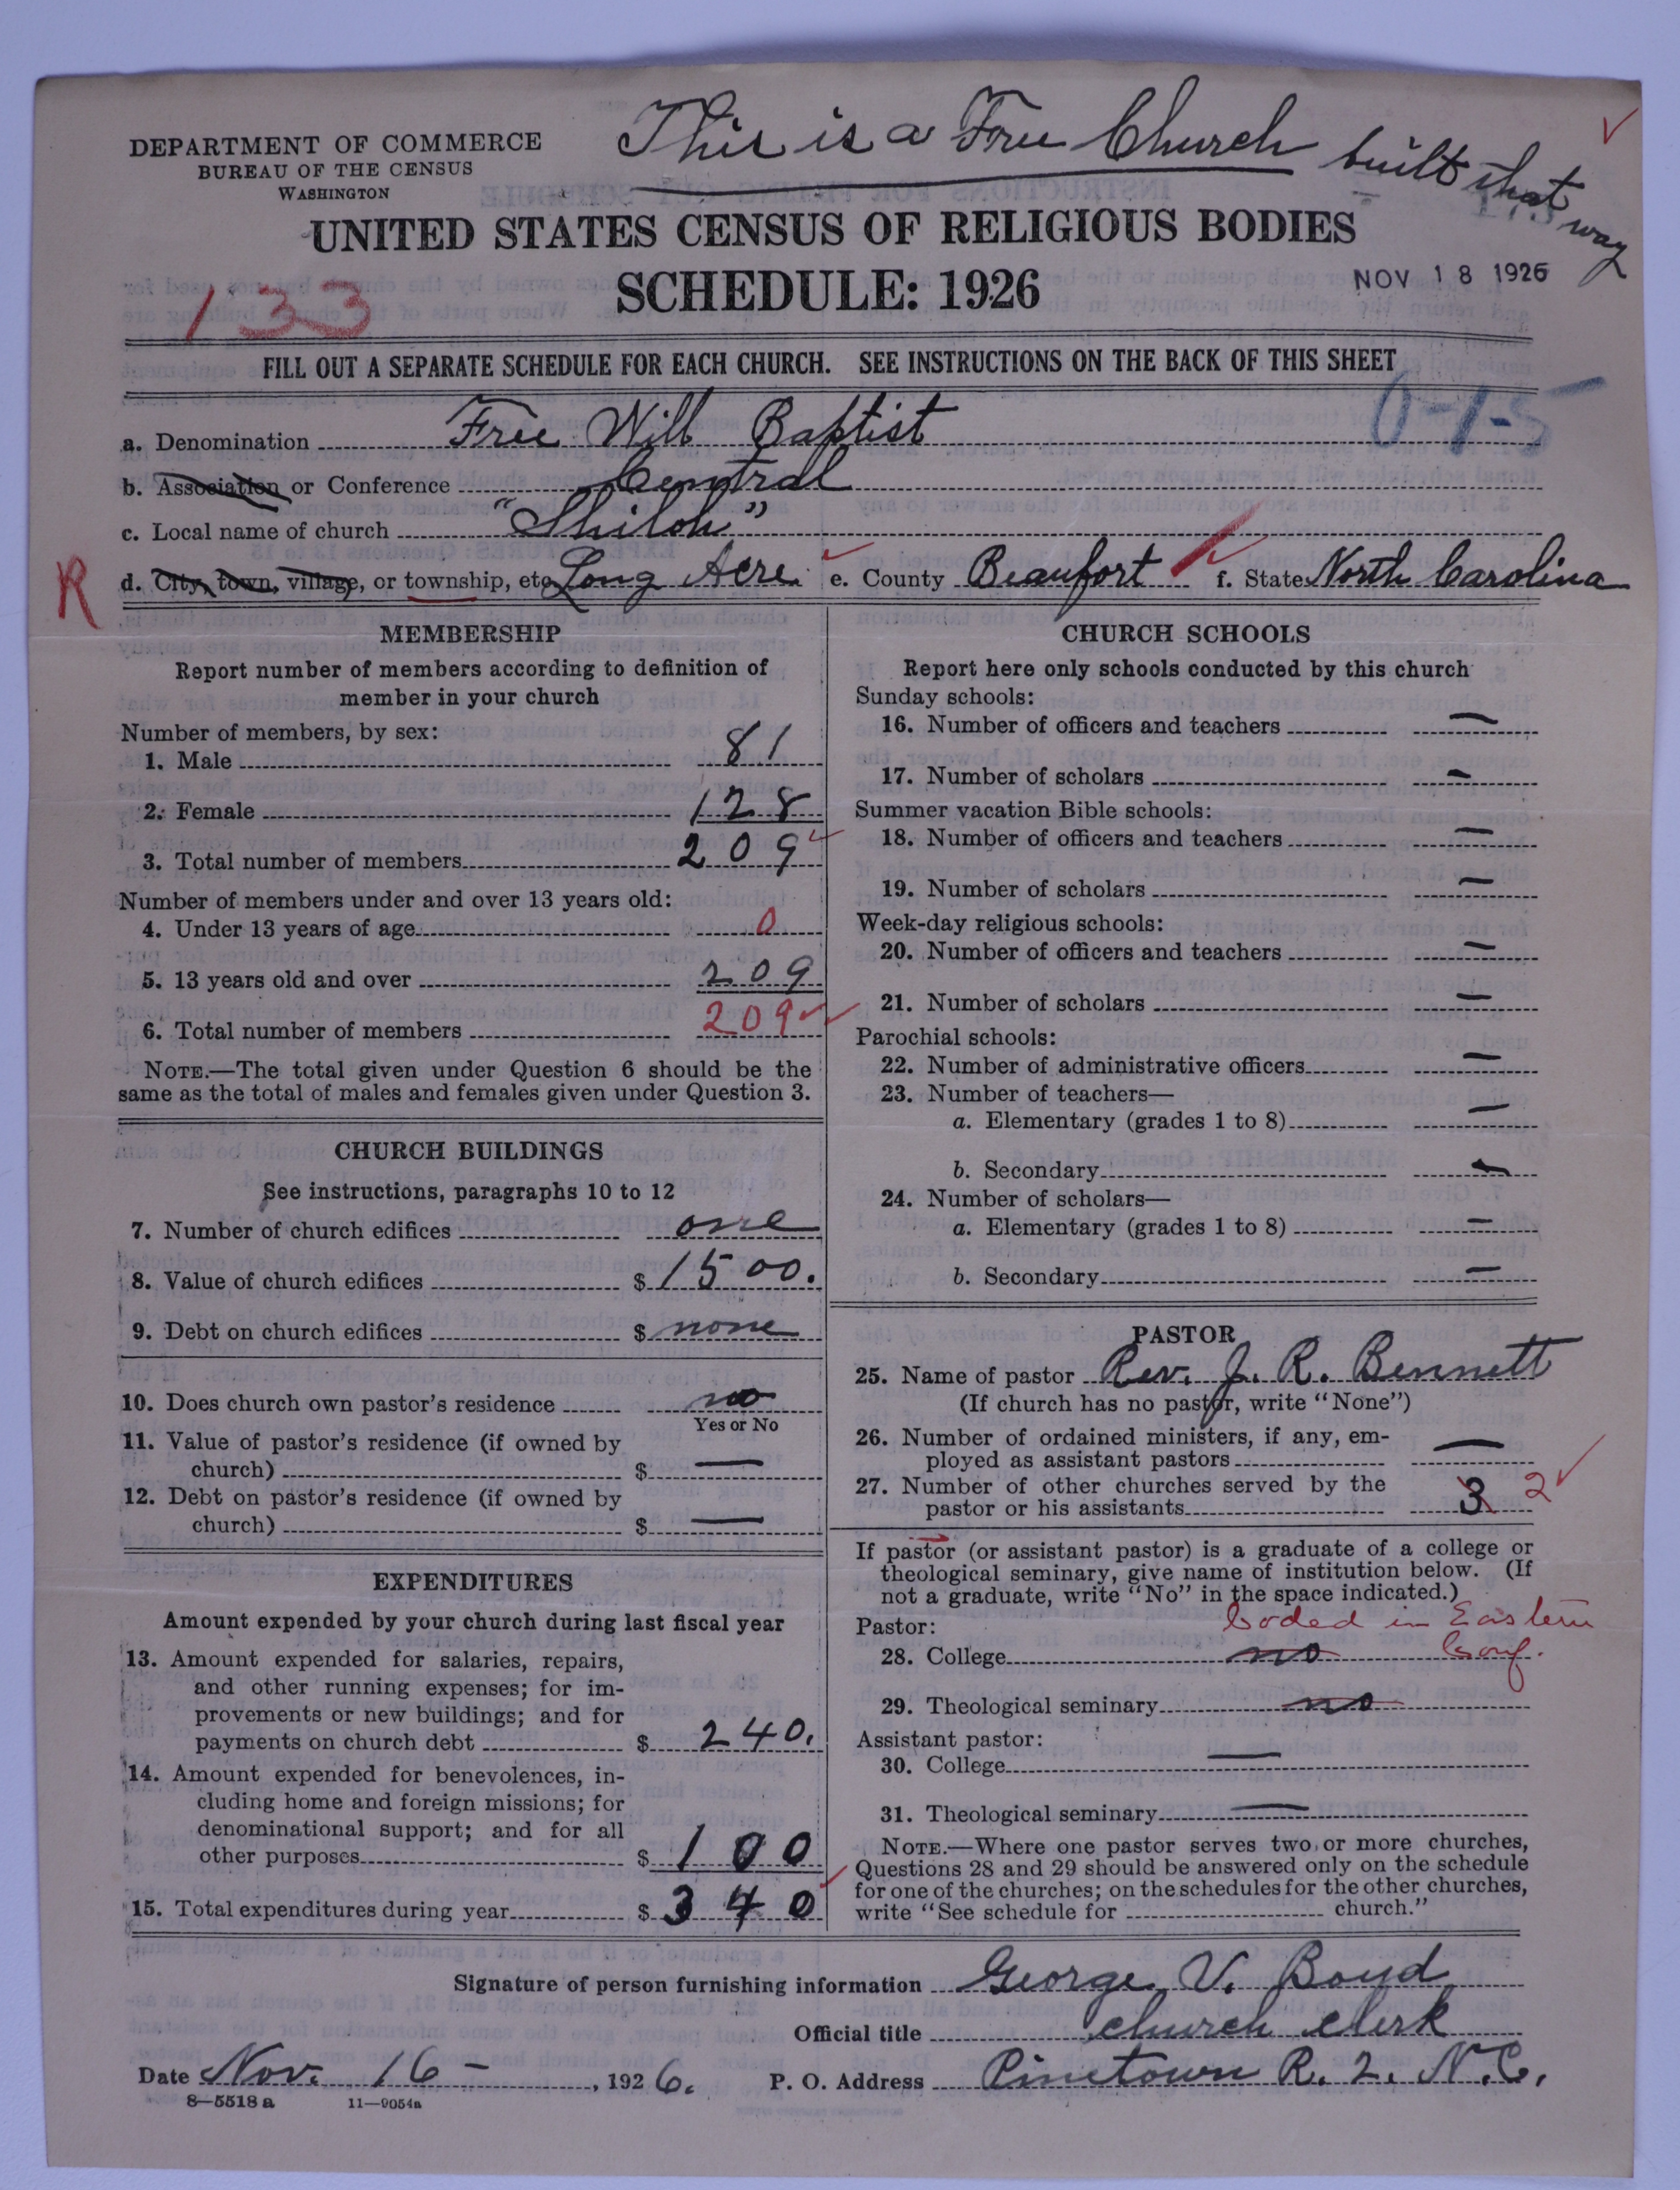 This is a Free Church built that way
DEPARTMENT OF COMMERCE
BUREAU OF THE CENSUS
WASHINGTON
UNITED STATES CENSUS OF RELIGIOUS BODIES
SCHEDULE: 1926
NOV 18 1926
133
FILL OUT A SEPARATE SCHEDULE FOR EACH CHURCH. SEE INSTRUCTIONS ON THE BACK OF THIS SHEET
0-1-5
a. Denomination Free Will Baptist
b. Association or Conference Central
c. Local name of church "Shiloh"
R
d. City, town, village, or township, etc. Long Acre e. County Beaufort f. State North Carolina
MEMBERSHIP
Report number of members according to definition of
member in your church
Number of members, by sex:
1. Male 81
2. Female 128
3. Total number of members 209
Number of members under and over 13 years old:
4. Under 13 years of age 0
5. 13 years old and over 209
6. Total number of members 209
NOTE.—The total given under Question 6 should be the
same as the total of males and females given under Question 3.
CHURCH BUILDINGS
See instructions, paragraphs 10 to 12
7. Number of church edifices one
8. Value of church edifices $ 1500.
9. Debt on church edifices $ none
10. Does church own pastor's residence no
Yes or No
11. Value of pastor's residence (if owned by
church) $ —
12. Debt on pastor's residence (if owned by
church) $ —
EXPENDITURES
Amount expended by your church during last fiscal year
13. Amount expended for salaries, repairs,
and other running expenses; for im-
provements or new buildings; and for
payments on church debt $ 240.
14. Amount expended for benevolences, in-
cluding home and foreign missions; for
denominational support; and for all
other purposes $ 100
15. Total expenditures during year $ 340
CHURCH SCHOOLS
Report here only schools conducted by this church
Sunday schools:
16. Number of officers and teachers —
17. Number of scholars —
Summer vacation Bible schools:
18. Number of officers and teachers —
19. Number of scholars —
Week-day religious schools:
20. Number of officers and teachers —
21. Number of scholars —
Parochial schools:
22. Number of administrative officers —
23. Number of teachers—
a. Elementary (grades 1 to 8) —
b. Secondary —
24. Number of scholars—
a. Elementary (grades 1 to 8) —
b. Secondary —
PASTOR
25. Name of pastor Rev. J. R. Bennett
(If church has no pastor, write "None")
26. Number of ordained ministers, if any, em-
ployed as assistant pastors —
27. Number of other churches served by the
pastor or his assistants 3 2
If pastor (or assistant pastor) is a graduate of a college or
theological seminary, give name of institution below. (If
not a graduate, write "No" in the space indicated.)
Coded in Eastern
Pastor:
28. College no Conf.
29. Theological seminary no
Assistant pastor:
30. College —
31. Theological seminary —
NOTE.—Where one pastor serves two or more churches,
Questions 28 and 29 should be answered only on the schedule
for one of the churches; on the schedules for the other churches,
write "See schedule for church."
Signature of person furnishing information George V. Boyd
Official title church clerk
Date Nov. 16 - , 1926. P. O. Address Pinetown R. 2. N.C.
8—5518 a 11—9054a